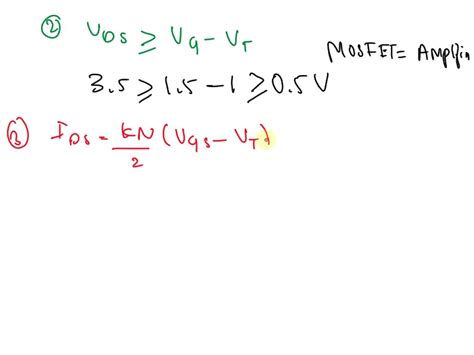 ② V_DS ≥ V_G - V_T
MOSFET = Amplifi
3.5 ≥ 1.5 - 1 ≥ 0.5 V
③ I_DS = kN/2 (V_GS - V_T)